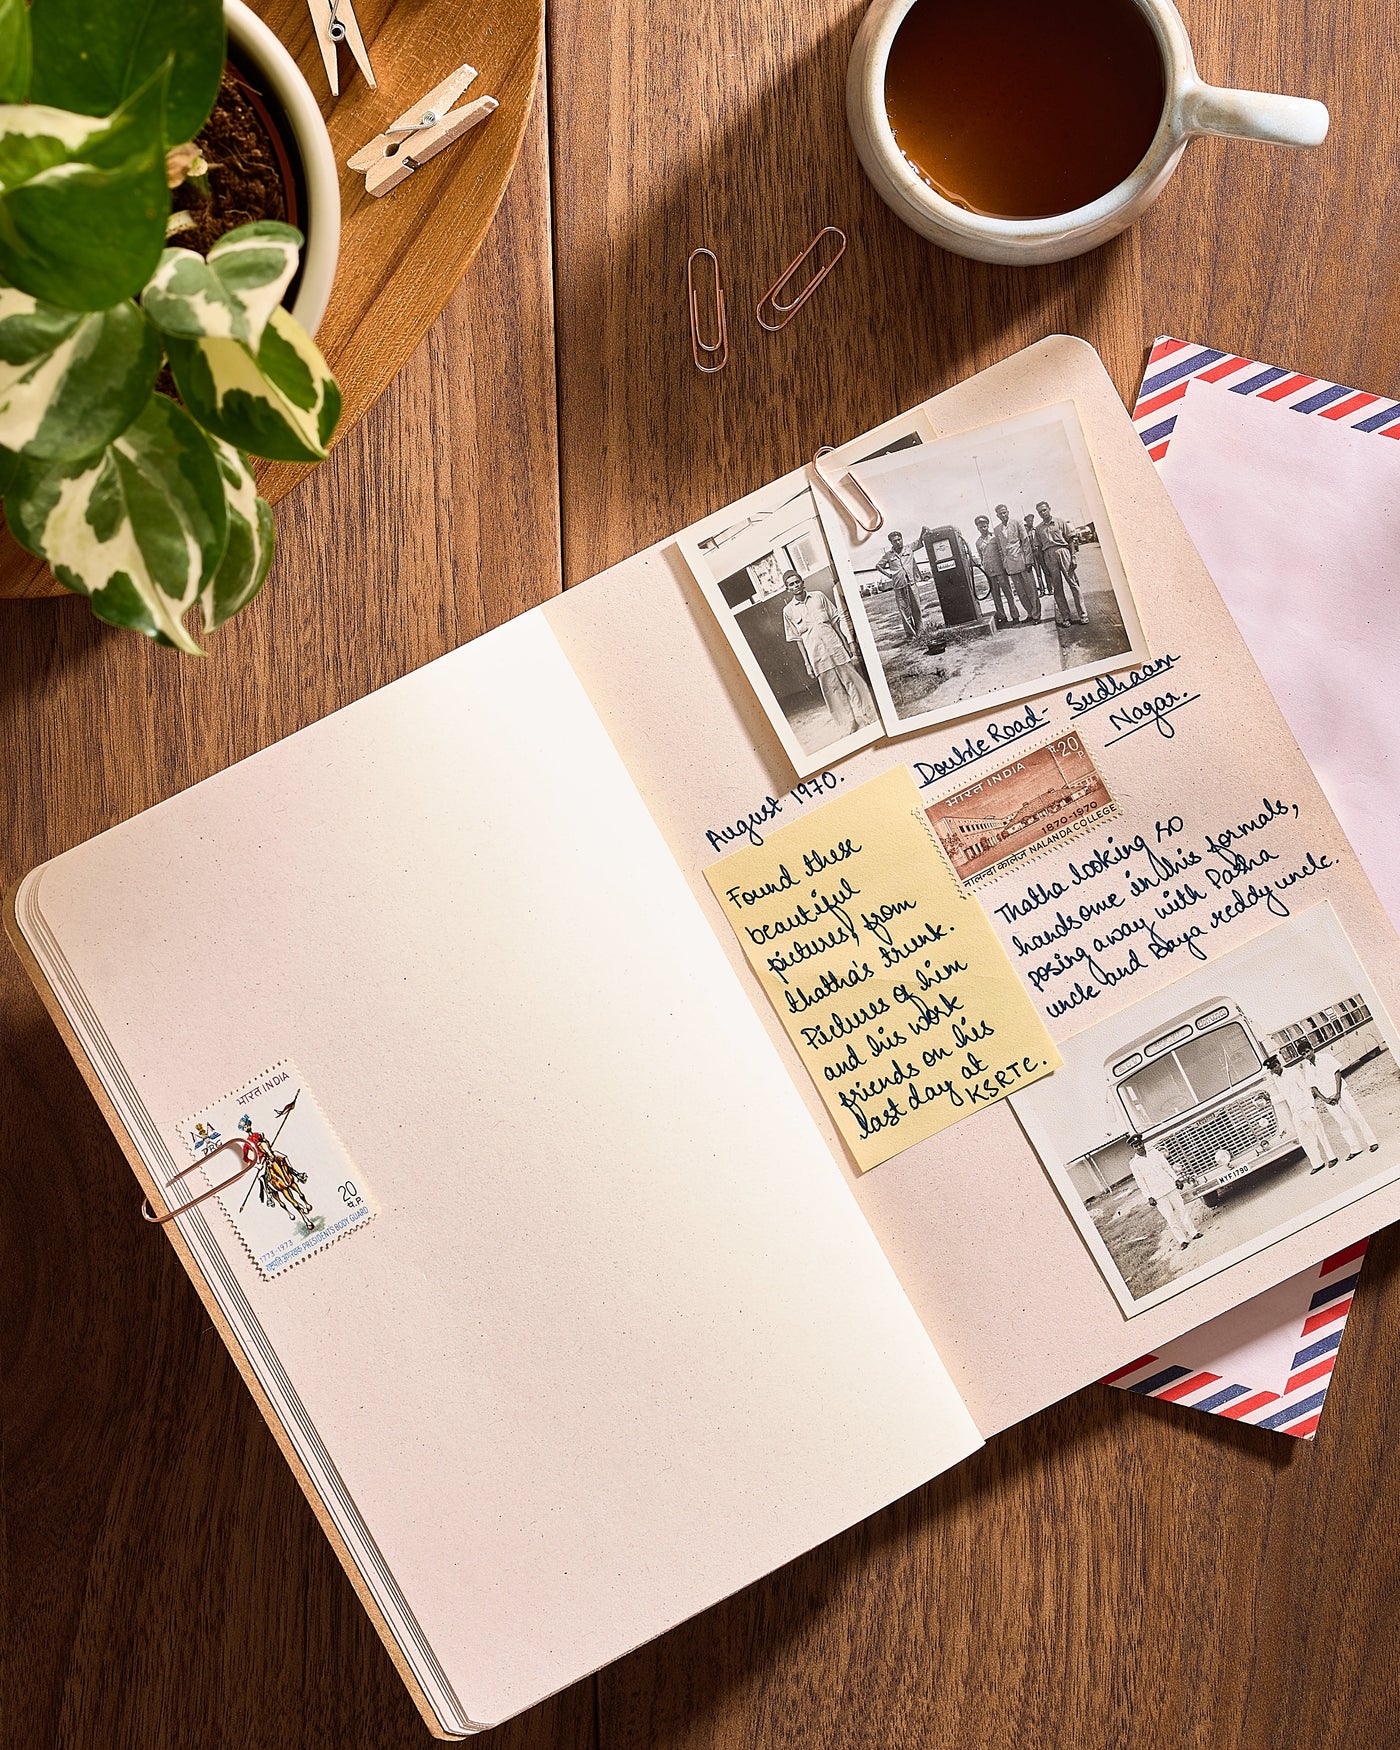 Double Road- Sudhaam
Nagar.
August 1970.
भारत INDIA
20
P
1870-1970
नालन्दा कालेज NALANDA COLLEGE
Found these
beautiful
pictures, from
thatha's trunk.
Pictures of him
and his work
friends on his
last day at
KSRTC.
Thatha looking so
handsome in his formals,
posing away with Pasha
uncle and Daya reddy uncle.
MYF 1790
भारत INDIA
PBG
20
1773-1973
PRESIDENT'S BODY GUARD